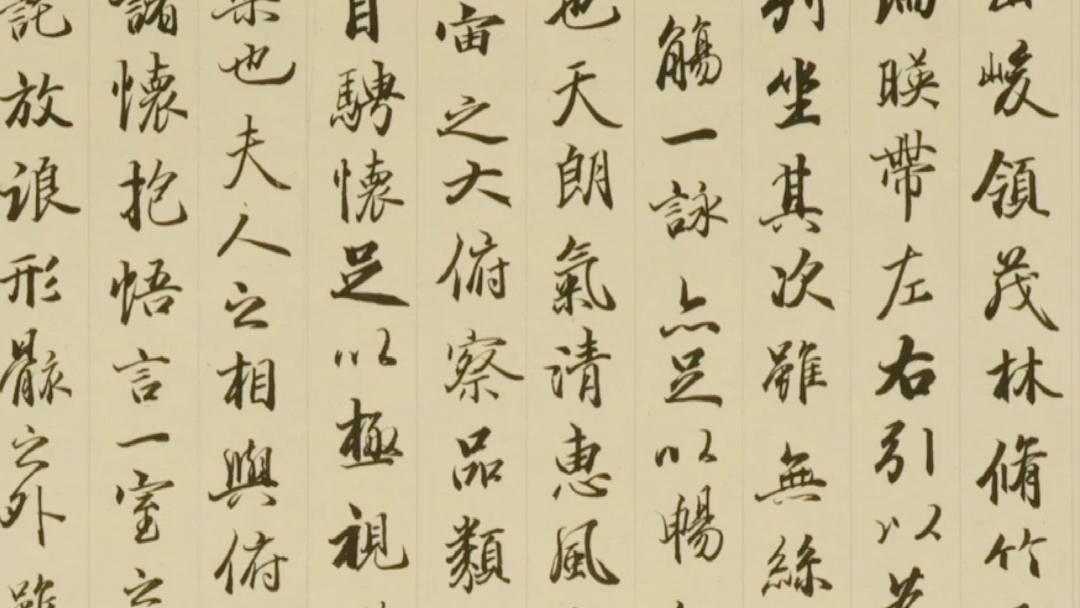 峻領茂林脩竹
暎帶左右引以
列坐其次雖無絲
觴一詠亦足以暢
也天朗氣清惠風
宙之大俯察品類
目騁懷足以極視
樂也夫人之相與俯
諸懷抱悟言一室之
託放浪形骸之外雖